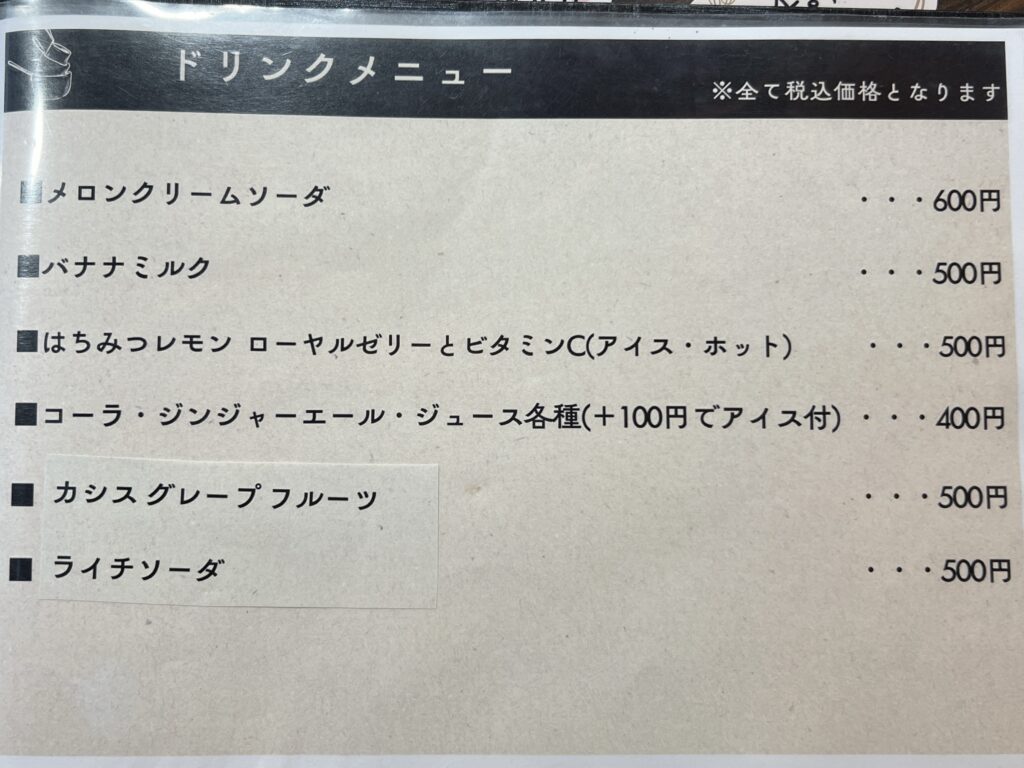 ドリンクメニュー
※全て税込価格となります
■メロンクリームソーダ ・・・600円
■バナナミルク ・・・500円
■はちみつレモン ローヤルゼリーとビタミンC(アイス・ホット) ・・・500円
■コーラ・ジンジャーエール・ジュース各種(＋100円でアイス付) ・・・400円
■ カシスグレープフルーツ ・・・500円
■ ライチソーダ ・・・500円